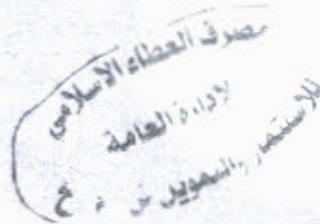 مصرف العطاء الاسلامي
الادارة العامة
للاستثمار والتمويل ش . م . خ